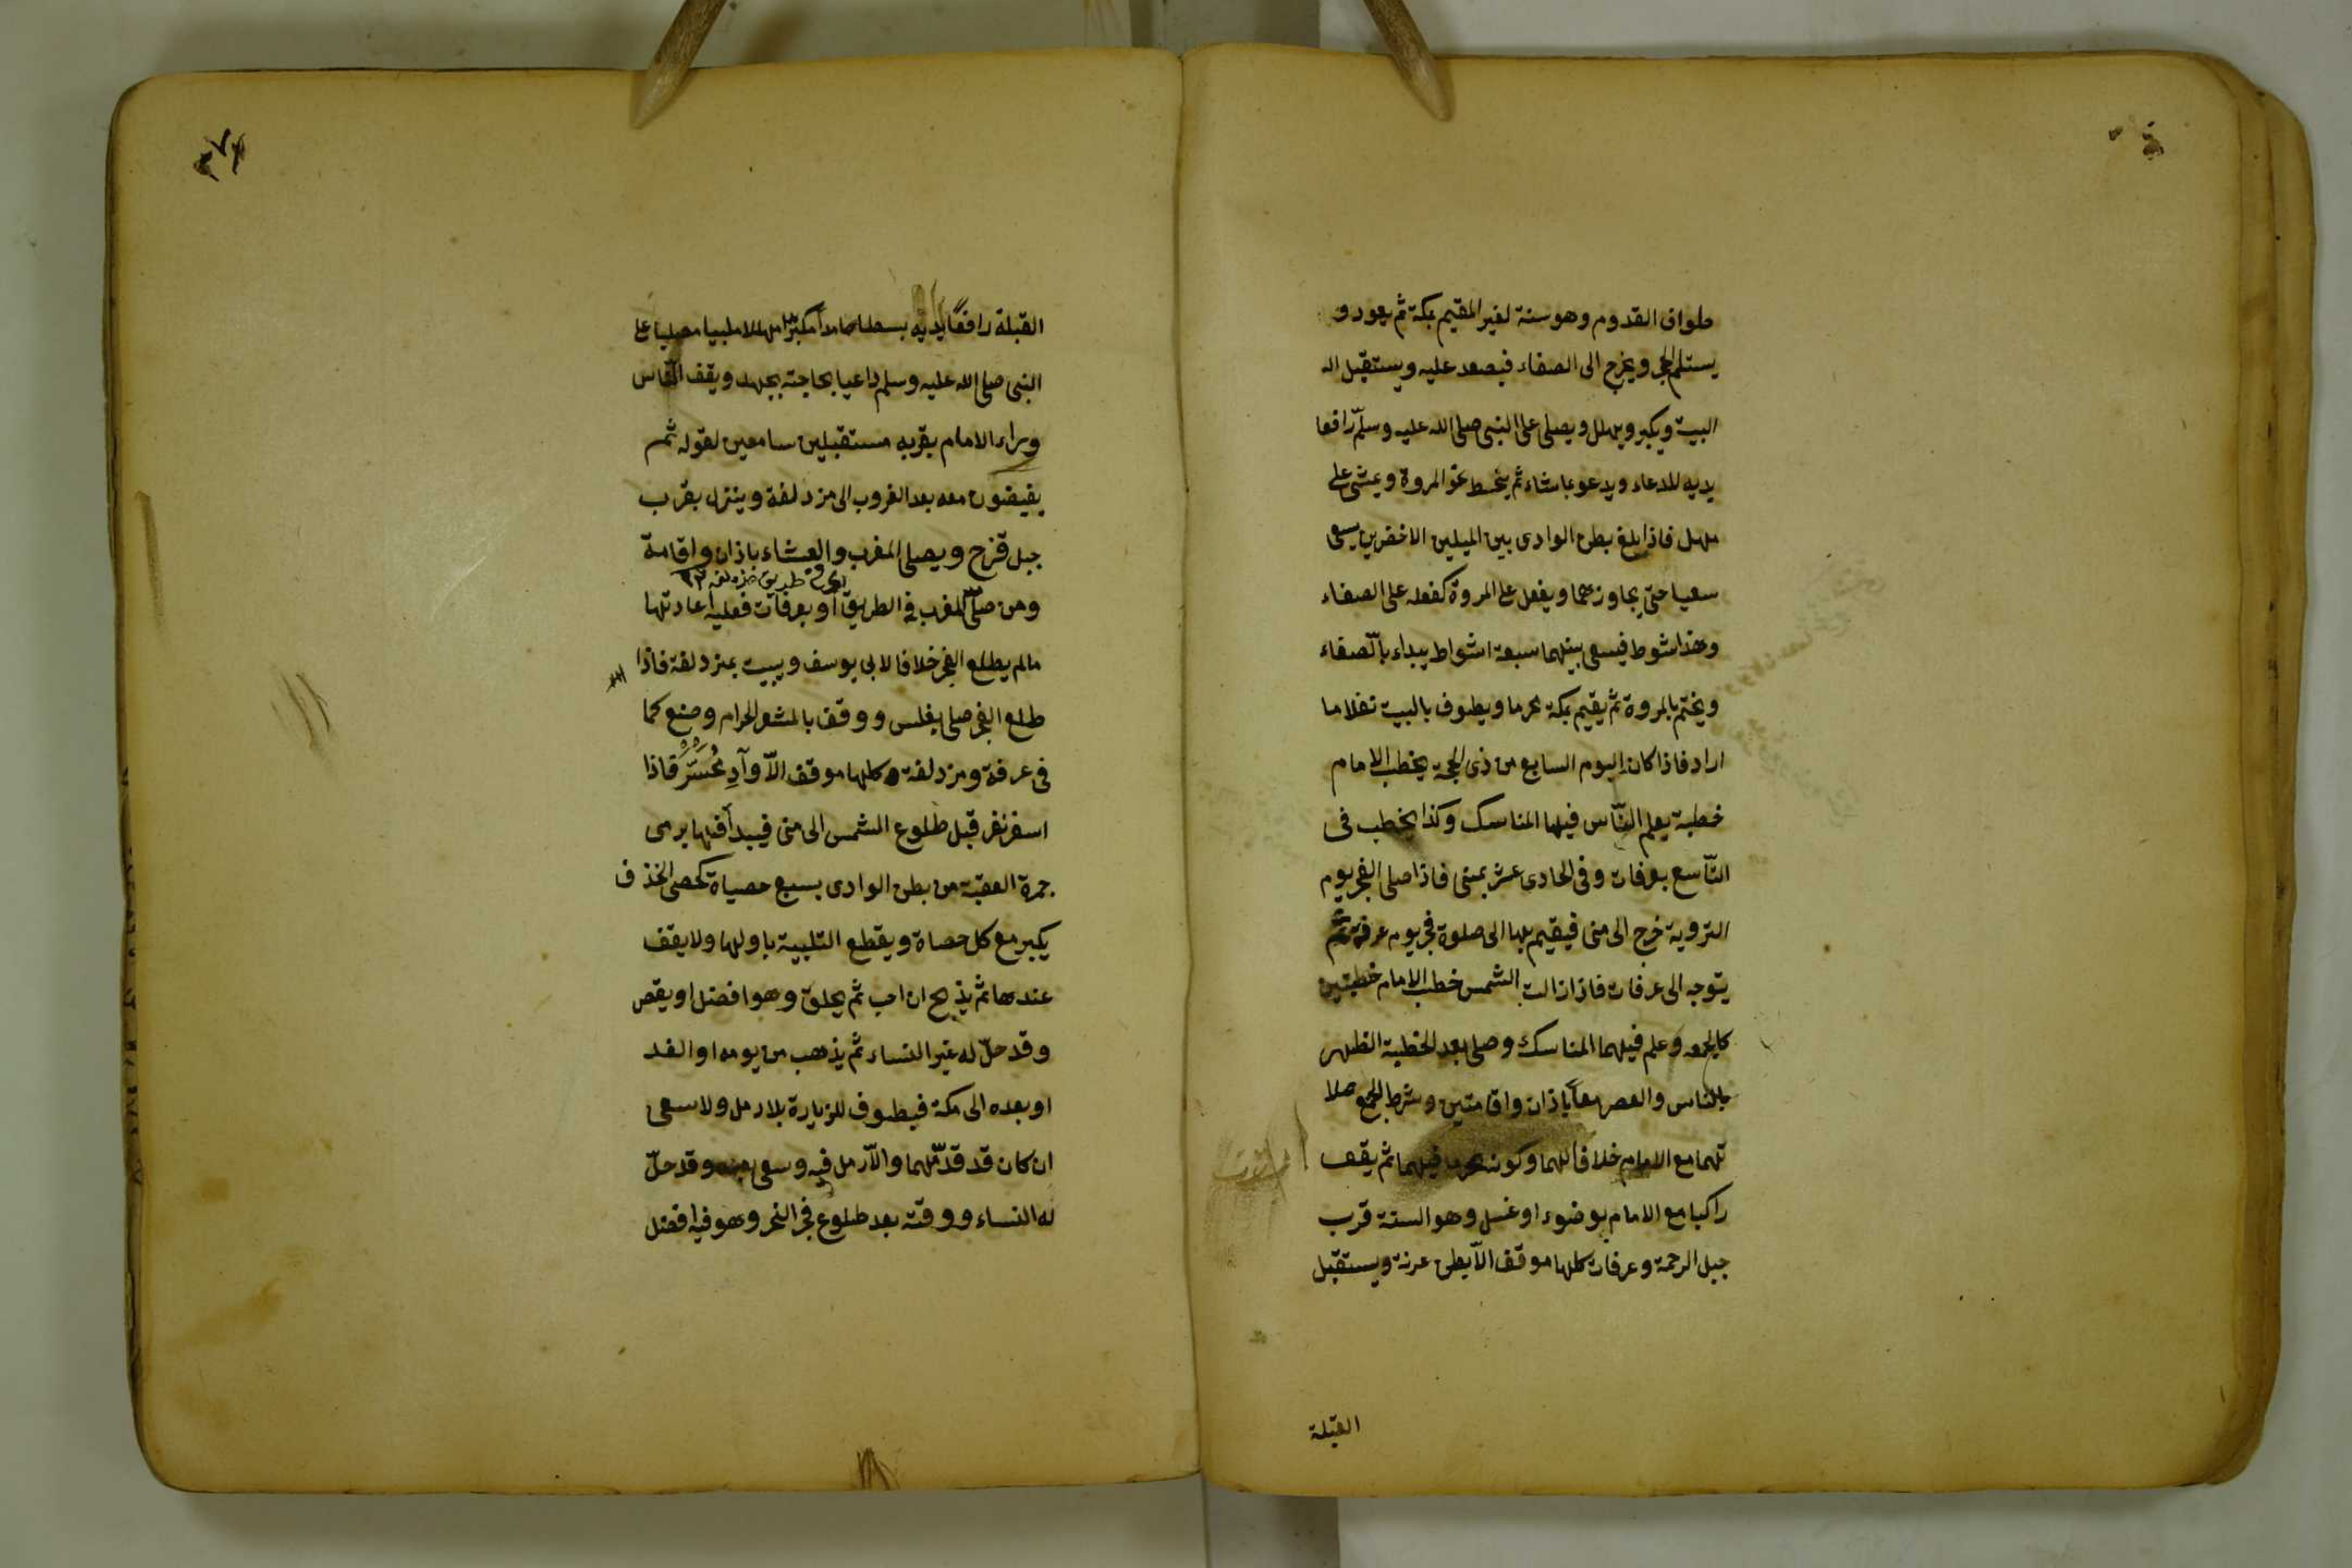 طواف القدوم وهو سنة لغير المقيم بمكة ثم يعود و
يستلم الحجر ويخرج الى الصفاء فيصعد عليه ويستقبل الـ
البيت ويكبر ويهلل ويصلى على النبى صلى الله عليه وسلّم رافعا
يديه للدعاء ويدعو بما شاء ثم ينحط نحو المروة ويمشى على
مهل فاذا بلغ بطن الوادى بين الميلين الاخضرين يسعى
سعيا حتى يجاوزهما ويفعل على المروة كفعله على الصفاء
وهذا شوط فيسعى بينهما سبعة اشواط يبداء بالّصفاء
ويختم بالمروة ثم يقيم بمكة محرما ويطوف بالبيت نفلا ما
اراد فاذا كان اليوم السابع من ذى الحجة يخطب الامام
خطبة يعلم النّاس فيها المناسك وكذا يخطب فى
التّاسع بعرفات وفى الحادى عشر بمنى فاذا صلى الفجر يوم
التروية خرج الى منى فيقيم بها الى صلوة فجر يوم عرفة ثم
يتوجه الى عرفات فاذا زالت الشمس خطب الامام خطبتين
كالجمعه وعلم فيهما المناسك وصلى بعد الخطبة الظهر
بالناس والعصر معاً باذان واقامتين وشرط الجمع صلا
تهما مع الامام خلافا لهما وكونه محرما فيهما ثم يقف
راكبا مع الامام بوضوء او غسل وهو السنة قرب
جبل الرحمة وعرفات كلها موقف الّا بطن عرنة ويستقبل
القبلة
القبلة رافعاً يديه بسطا حامداً مكبّرا مهللا ملبيا مصليا على
النبى صلى الله عليه وسلم داعيا بحاجته بجهد ويقف النّاس
وراء الامام بقربه مستقبلين سامعين لقوله ثم
يفيضون معه بعد الغروب الى مزدلفة وينزل بقرب
جبل قزح ويصلى المغرب والعشاء باذان واقامة
طريق مزدلفه
ومن صلّى المغرب فى الطريق أو بعرفات فعليه اعادتها
مالم يطلع الفجر خلافا لابى يوسف ويبيت بمزدلفة فاذا
طلع الفجر صلى بغلس ووقف بالمشعر الحرام وصنع كما
فى عرفة ومزدلفة كلها موقف الّا وآدِ مُحَسَّر فاذا
اسفر نفر قبل طلوع الشمس الى منى فيبدأ فيها برمى
جمرة العقبة من بطن الوادى بسبع حصياة كحصى الخذف
يكبر مع كل حصاة ويقطع التلبية باولها ولا يقف
عندها ثم يذبح ان احب ثم يحلق وهو افضل او يقصر
وقد حلّ له غير النساء ثم يذهب من يومه او الغد
او بعده الى مكة فيطوف للزيارة بلا رمل ولا سعى
ان كان قد قدّمهما والّا رمل فيه وسعى بعده وقد حلّ
له النساء ووقته بعد طلوع فجر النحر وهو فيه افضل